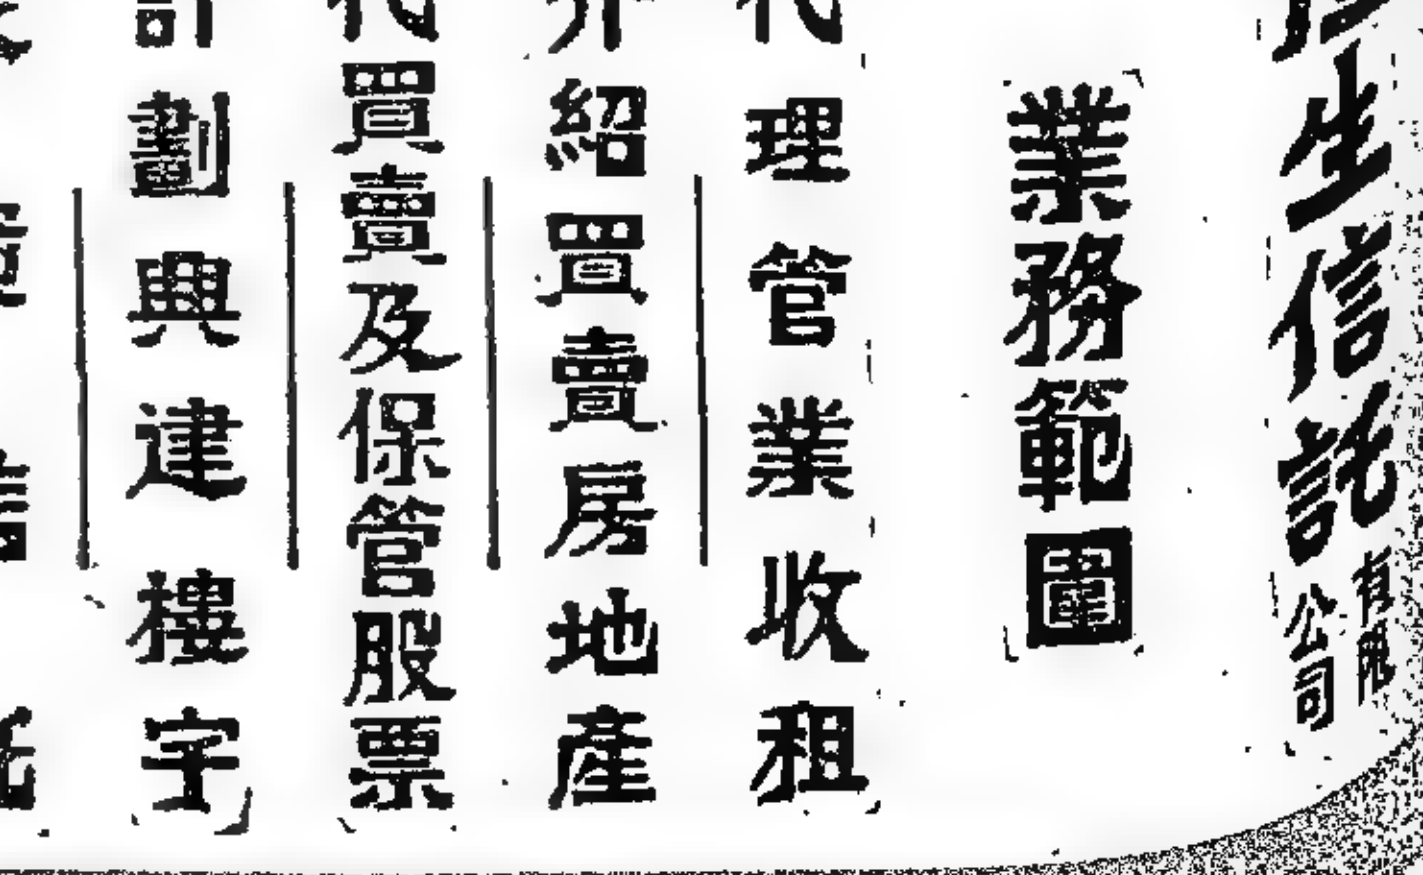 生信託有限公司
業務範圍
代理管業收租
介紹買賣房地產
代買賣及保管股票
計劃興建樓宇